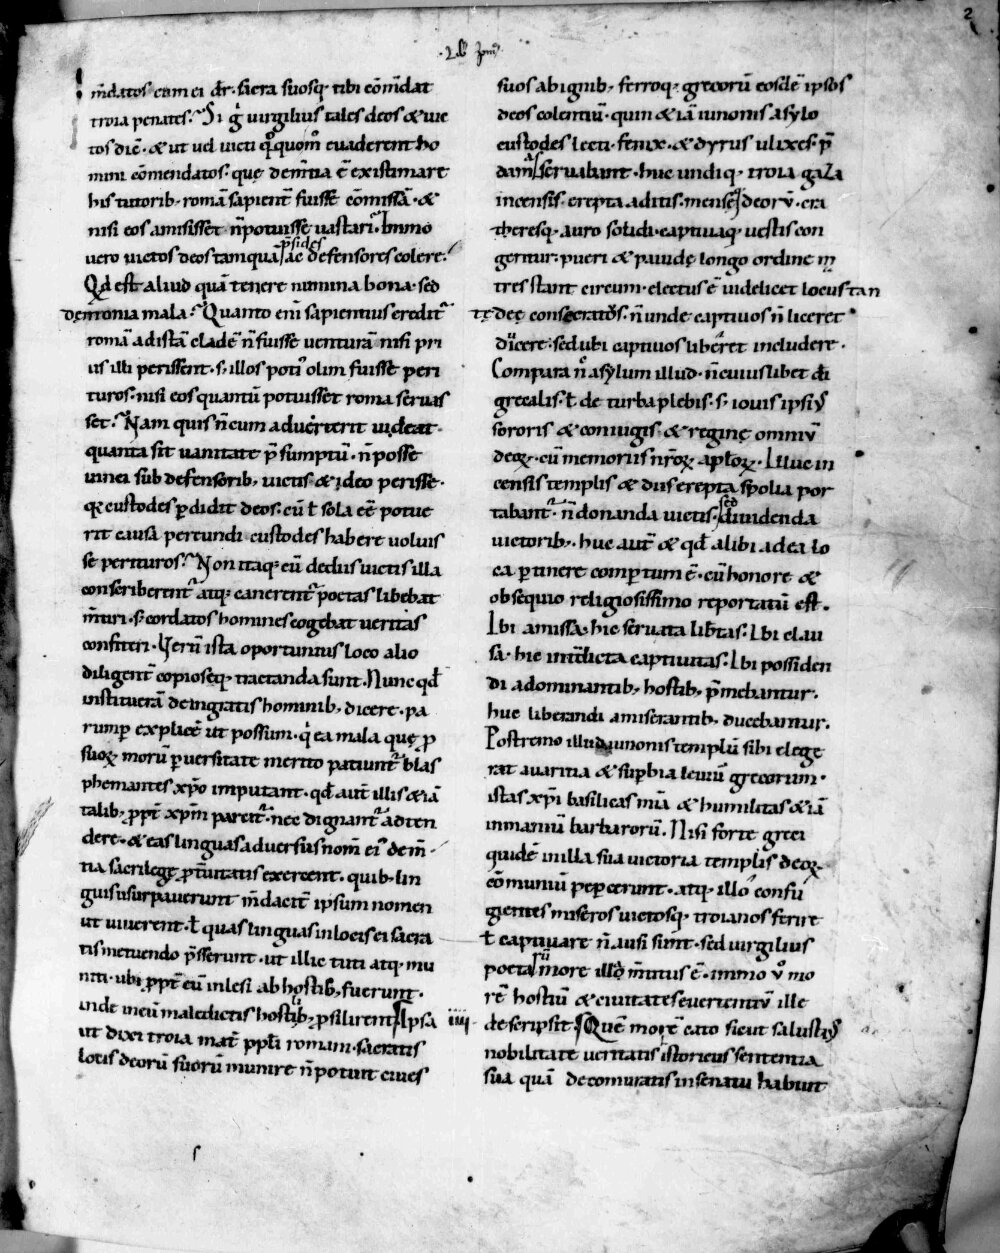 2
·Lib̄ Prim᷒·
m̄datos cum ei dr̄· sacra suosq; tibi cōm̄dat
troia penates. Si g̊ virgilius tales deos & uic
tos dic̄· & ut uel uicti quoquom̊ euaderent ho
mini cōmendatos· quę dem̄tia ē existimare
his tutorib; romā sapient̄ fuisse cōmissā· &
nisi eos amisisset n̄ potuisse uastari. Immo
uero uictos deos tamquā p̄sides ac defensores colere·
Qd̄ est aliud quā tenere numina bona· sed
dęmonia mala. Quanto eni sapientius credit᷑
romā ad istā cladē n̄ fuisse venturā nisi pri
us illi perissent· s; illos poti᷒ olim fuisse peri
turos· nisi eos quantū potuisset roma seruas
set. Nam quis n̄ cum aduerterit uideat
quanta sit uanitate p̄sumptū· n̄ posse
uinci sub defensorib; uictis & ideo perisse·
qr custodes p̄didit deos· cū ł sola eē potue
rit causa pereundi custodes habere voluis
se perituros. Non itaq; cū de diis uictis illa
conscriberent᷑ atq; canerent᷑ poetas libebat
m̄tiri· s; cordatos homines cogebat veritas
confiteri· Verū ista oportunius loco alio
diligent̄ copioseq; tractanda sunt· Nunc qd̄
institueram de ingratis hominib; dicere· pa
rump explicē ut possum· q̊ ea mala quę p
suoꝝ morū p̄uersitate merito patiunt᷑ blas
phemantes xp̄o imputant· qd̄ aut̄ illis & iā
talib; ppt̄ xp̄m parcit᷑· nec dignant᷑ adten
dere· & eas linguas aduersus nom̄ ei᷒ dem̄
tia sacrilegę pt̄uitatis exercent· quib; lin
guis usurpauerunt m̄daciū ipsum nomen
ut viuerent· ł quas linguas in locis ei sacra
tis metuendo p̄sserunt· ut illic tuti atq; mu
niti· ubi ppt̄ eū inlesi ab hostib; fuerunt·
inde in eū maledictis hostilib; psilirent Ipsa
ut dixi troia mat̄ pp̄li romani· sacratis
locis deorū suorū munire n̄ potuit ciues
suos ab ignib; ferroq; grecorū eosdē ipsos
deos colentiū· quin & iā iunonis asylo
custodes lecti· fenix· & dyrus ulixes· p̄
dam asseruabant· huc undiq; troia gaza
incensis· erepta aditis· mensęq; deorū· cra
theresq; auro solidi· captiuaq; uestis con
geritur· pueri & pauidę longo ordine m̄
tres stant circum· electus ē uidelicet locus tan
tę deę consecratus· n̄ unde captiuos n̄ liceret
educere· sed ubi captiuos liberet includere·
Compara n̄c asylum illud· n̄ cuiuslibet di
gregalis· ł de turba plebis· s; iouis ipsi᷒
sororis & coniugis· & reginę omniū
deoꝝ· cū memoriis nr̄oꝝ apl̄oꝝ· Illuc in
censis templis & diis erepta spolia por
tabant᷑· n̄ donanda uictis· sed diuidenda
uictorib;· huc aut̄ & qd̄ alibi ad ea lo
ca p̄tinere compertum ē· cū honore &
obsequio religiosissimo reportatū est.
Ibi amissa· hic seruata lib̄tas· Ibi clau
sa· hic int̄dicta captiuitas· Ibi possiden
di a dominantib; hostib; p̄mebantur·
huc liberandi a miserantib; ducebantur·
Postremo illud iunonis templū sibi elege
rat auaritia & sup̄bia leuium grecorum·
istas xp̄i basilicas mia & humilitas & iā
inmaniū barbarorū· Nisi forte greci
quidē in illa sua uictoria templis deoꝝ
cōmuniū pepercerunt· atq; illo confu
gientes miseros uictosq; troianos ferire
ł captiuare n̄ ausi sunt· sed uirgilius
poetarū more illud m̄titus ē· immo v̊ mo
rē hostiū & ciuitates euertentiū ille
descripsit Quē morē cato sicut salusti᷒
nobilitate ueritatis istoricus sententia
sua quā de coniuratis in senatu habuit
iiii·